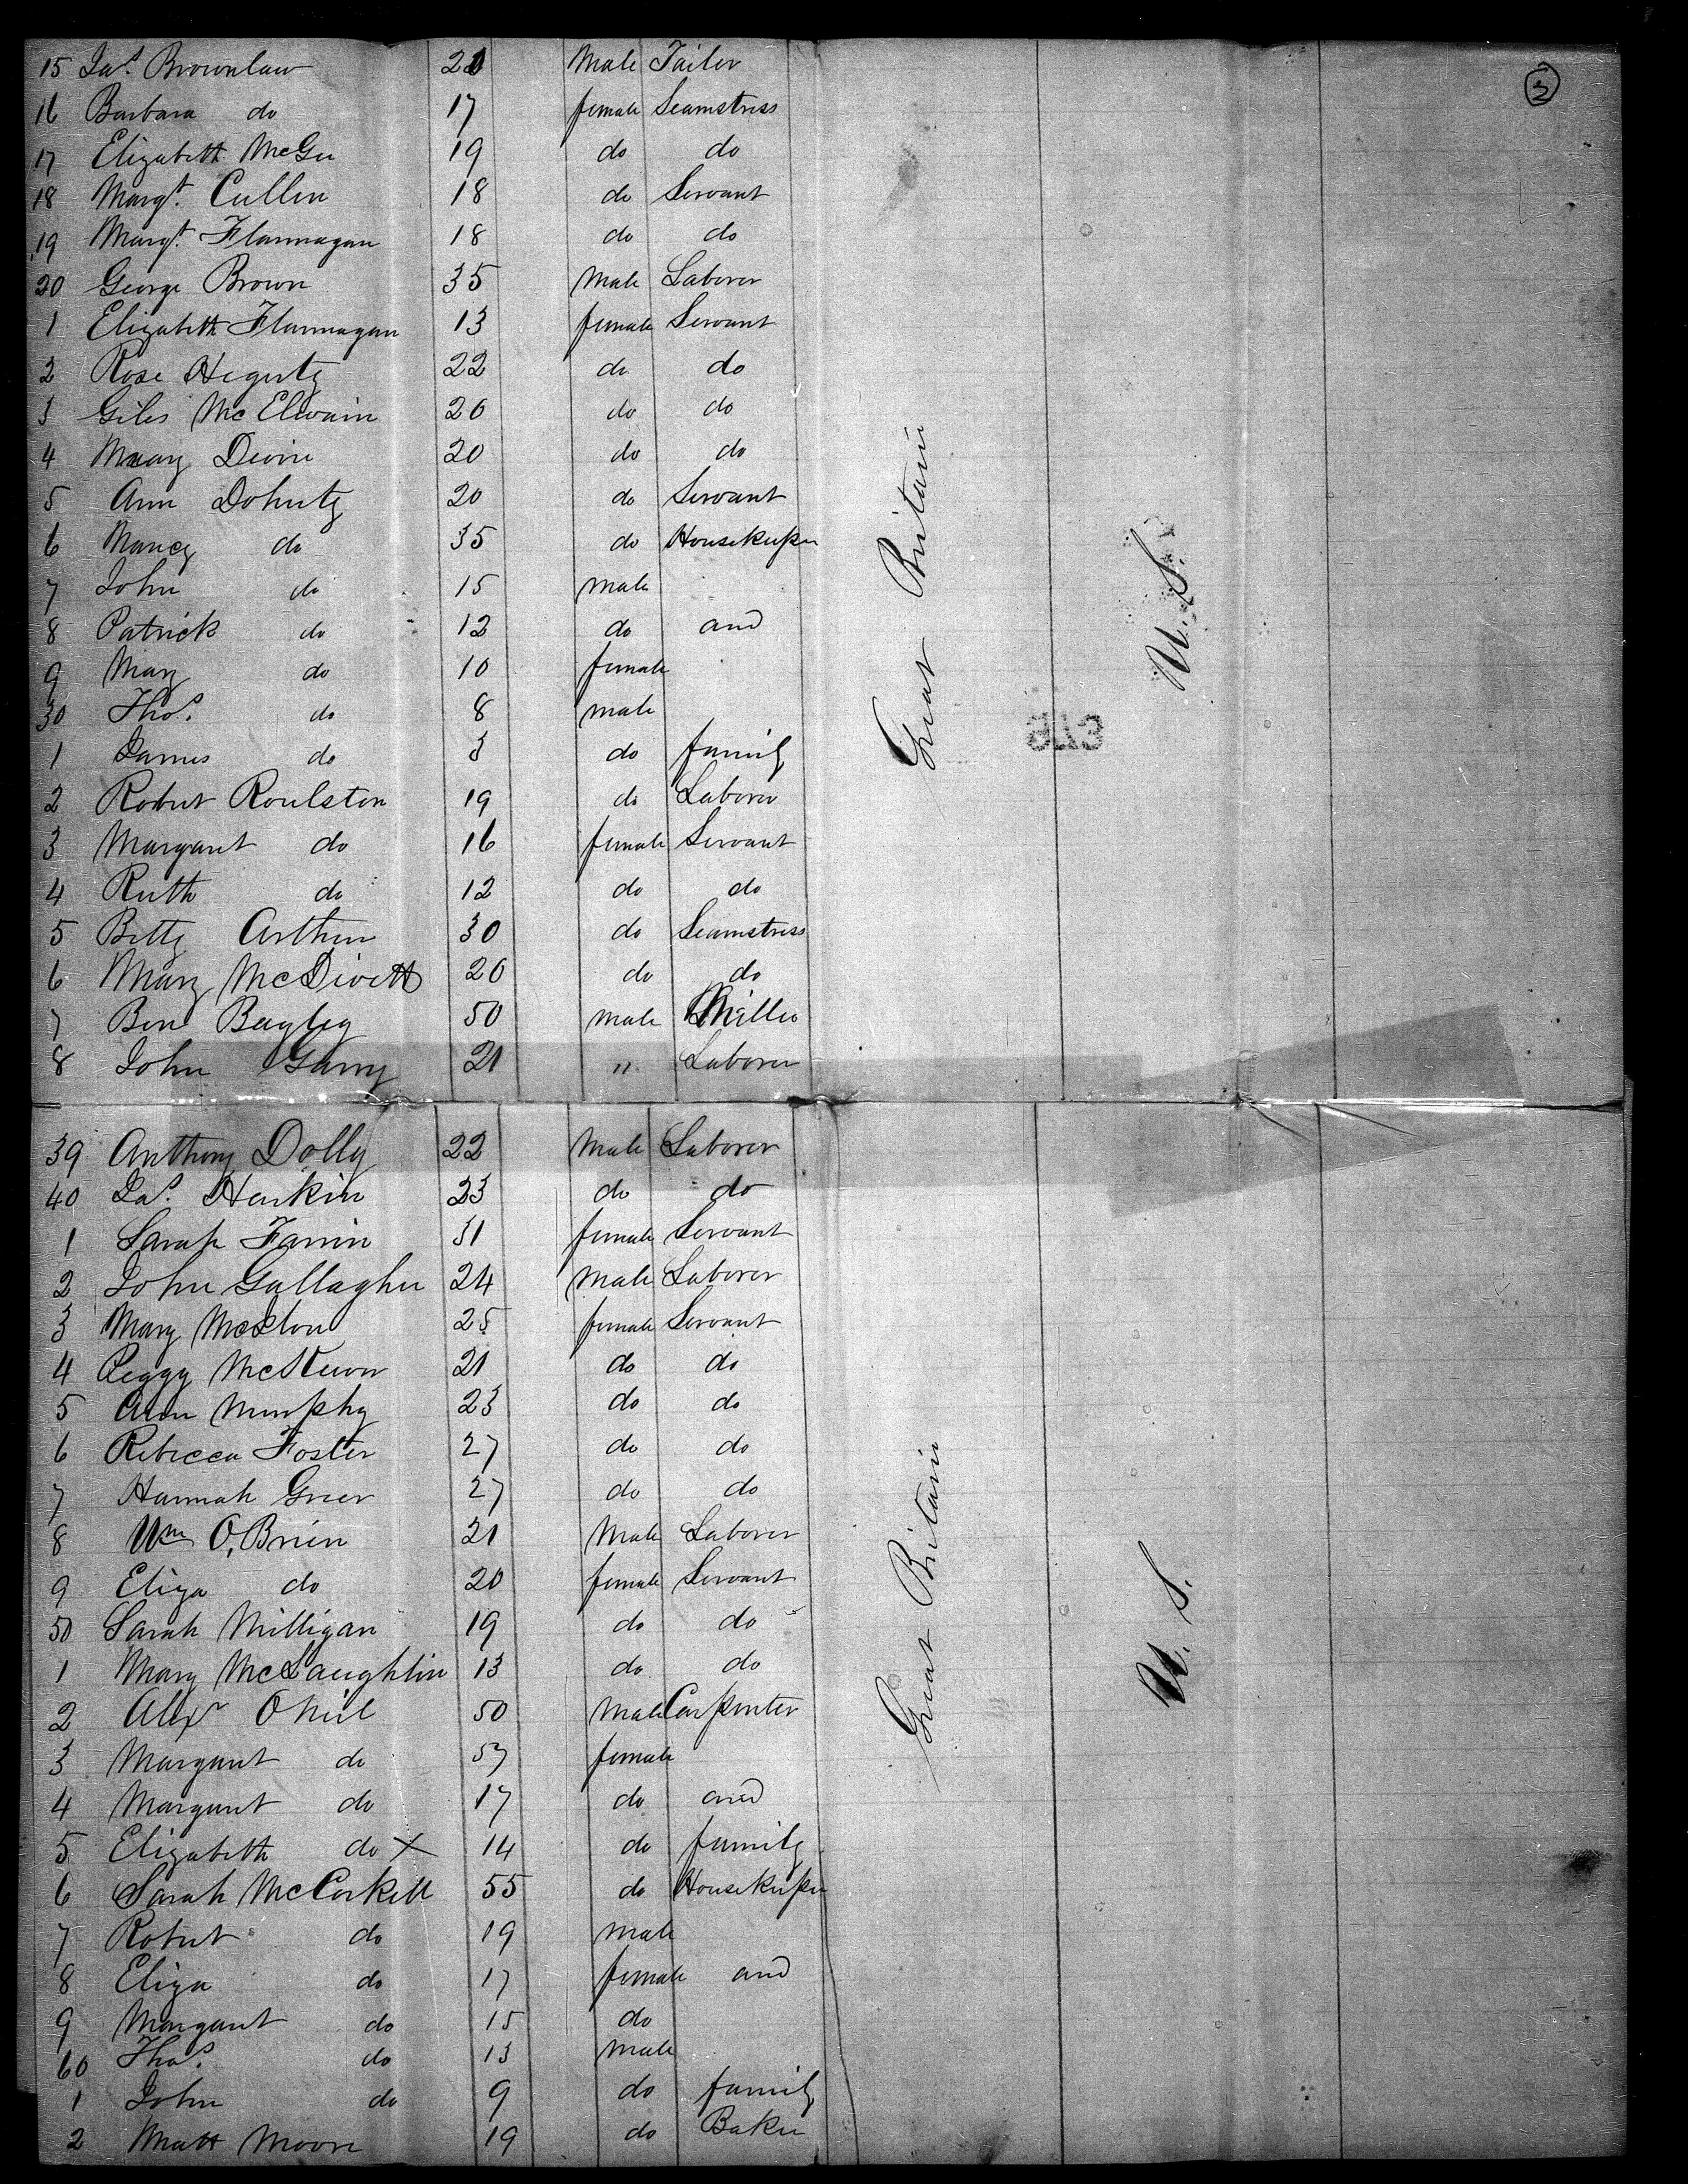 3
15 Jas. Brownlaw 20 Male Tailor
16 Barbara do 17 female Seamstress
17 Elizabeth McGee 19 do do
18 Margt. Cullen 18 do Servant
19 Margt. Flannagan 18 do do
20 George Brown 35 Male Laborer
1 Elizabeth Flannagan 13 female Servant
2 Rose Hegerty 22 do do
3 Giles McElwain 20 do do
4 Mary Devin 20 do do
5 Ann Doherty 20 do Servant
6 Nancy do 35 do Housekeeper
7 John do 15 male
8 Patrick do 12 do and
9 Mary do 10 female
30 Thos. do 8 male
1 James do 3 do family
2 Robert Roulston 19 do Laborer
3 Margaret do 16 female Servant
4 Ruth do 12 do do
5 Betty Arthur 30 do Seamstress
6 Mary McDivett 20 do do
7 Ben Bagley 50 Male Miller
8 John Garry 21 " Laborer
Great Britain
U.S.
375
39 Anthony Dolly 22 Male Laborer
40 Jas. Harkin 23 do do
1 Sarah Farrin 31 female Servant
2 John Gallagher 24 Male Laborer
3 Mary 25 female Servant
4 Peggy 21 do do
5 Ann Murphy 23 do do
6 Rebecca Foster 27 do do
7 Hannah Greer 27 do do
8 Wm O'Brien 21 Male Laborer
9 Eliza do 20 female Servant
50 Sarah Milligan 19 do do
1 Mary McLaughlin 13 do do
2 Alexr ONeil 50 Male Carpenter
3 Margaret do 57 female
4 Margaret do 17 do and
5 Elizabeth do X 14 do family
6 Sarah McCorkell 55 do Housekeeper
7 Robert do 19 male
8 Eliza do 17 female and
9 Margaret do 15 do
60 Thos. do 13 male
1 John do 9 do family
2 Matt Moore 19 do Baker
Great Britain
U.S.